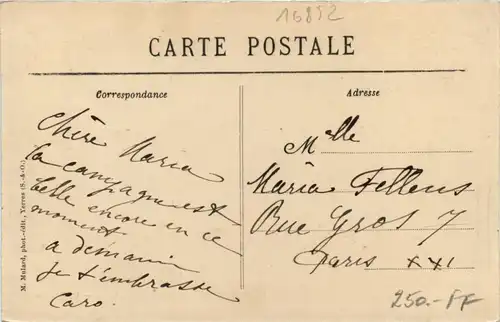 16852
CARTE POSTALE
Correspondance
Adresse
Chère Maria
la campagne est
belle encore en ce
moment
a demain
je t'embrasse
Caro.
Melle
Maria Fellens
Rue Gros 7
Paris XXI
250.- FF
M. Mulard, phot.-édit., Yerres (S.-&-O.)